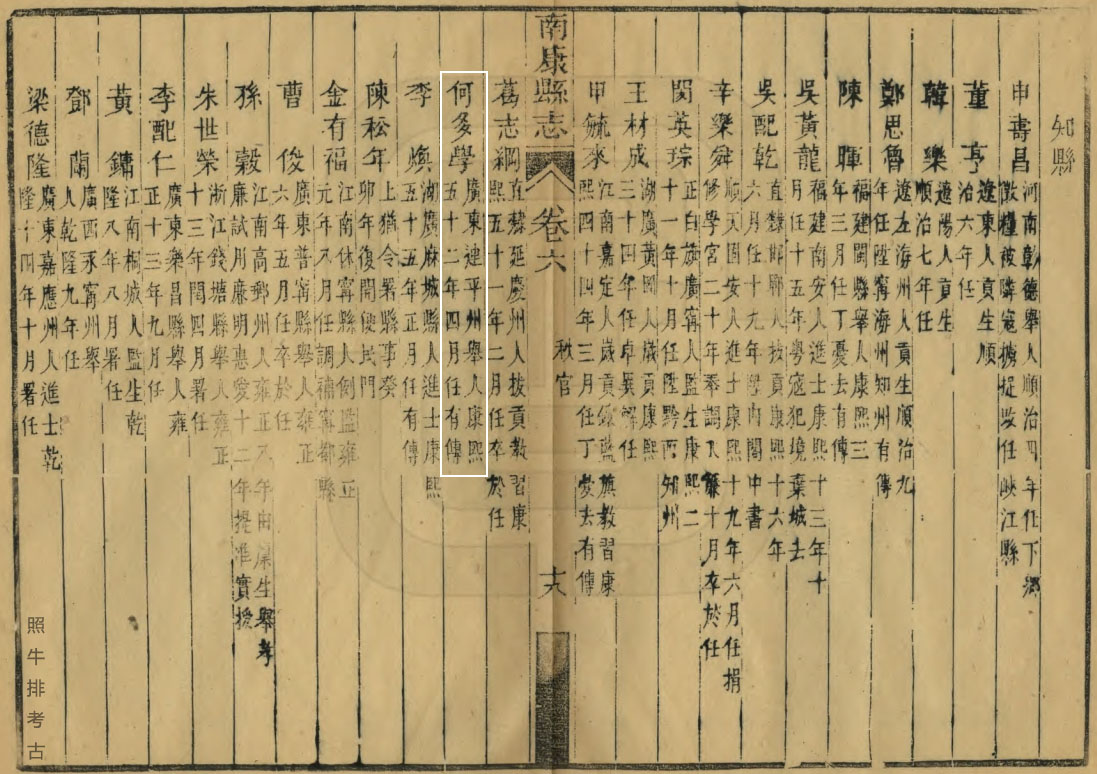 知縣
申壽昌 河南彰德舉人順治四年任下鄉
徵糧被隣寇擄捉改任峽江縣
董亨 遼東人貢生順
治六年任
韓樂 遼陽人貢生
順治七年任
鄭思魯 遼左海州人貢生順治九
年任陞寧海州知州有傳
陳暉 福建閩縣舉人康熙三
年三月任丁憂去有傳
吳黃龍 福建南安人進士康熙十三年十
月任十五年粵寇犯境棄城去
吳配乾 直隸邯鄲人拔貢康熙十六年
六月任十九年陞內閣中書
辛樂舜 順天固安人進士康熙十九年六月任捐
修學宮二十年奉調入簾十月卒於任
閔英琮 正白旗廣寧人監生康熙二
十一年十月任陞黔西知州
王材成 湖廣黃岡人歲貢康熙
三十四年任卓異解任
申毓來 江南嘉定人歲貢鑲藍旗教習康
熙四十四年三月任丁憂去有傳
南康縣志
卷六
秩官
十八
葛志綱 直隸延慶州人拔貢教習康
熙五十一年二月任卒於任
何多學 廣東連平州舉人康熙
五十二年四月任有傳
李煥 湖廣麻城縣人進士康熙
五十五年正月任有傳
陳松年 上猶令署縣事癸
卯年復開便民門
金有福 江南休寧縣人例監雍正
元年八月任調補寧都縣
曹俊 廣東普寧舉人雍正
六年五月任卒於任
孫毅 江南高郵州人雍正八年由廩生舉孝
廉試用廉明惠愛十二年提准實授
朱世榮 浙江錢塘舉人雍正
十三年閏四月署任
李配仁 廣東樂昌縣舉人雍
正十三年九月任
黃鏞 江南桐城人監生乾
隆八年八月署任
鄧蘭 廣西永寧州舉
人乾隆九年任
梁德隆 廣東嘉應州人進士乾
隆十四年十月署任
照牛排考古